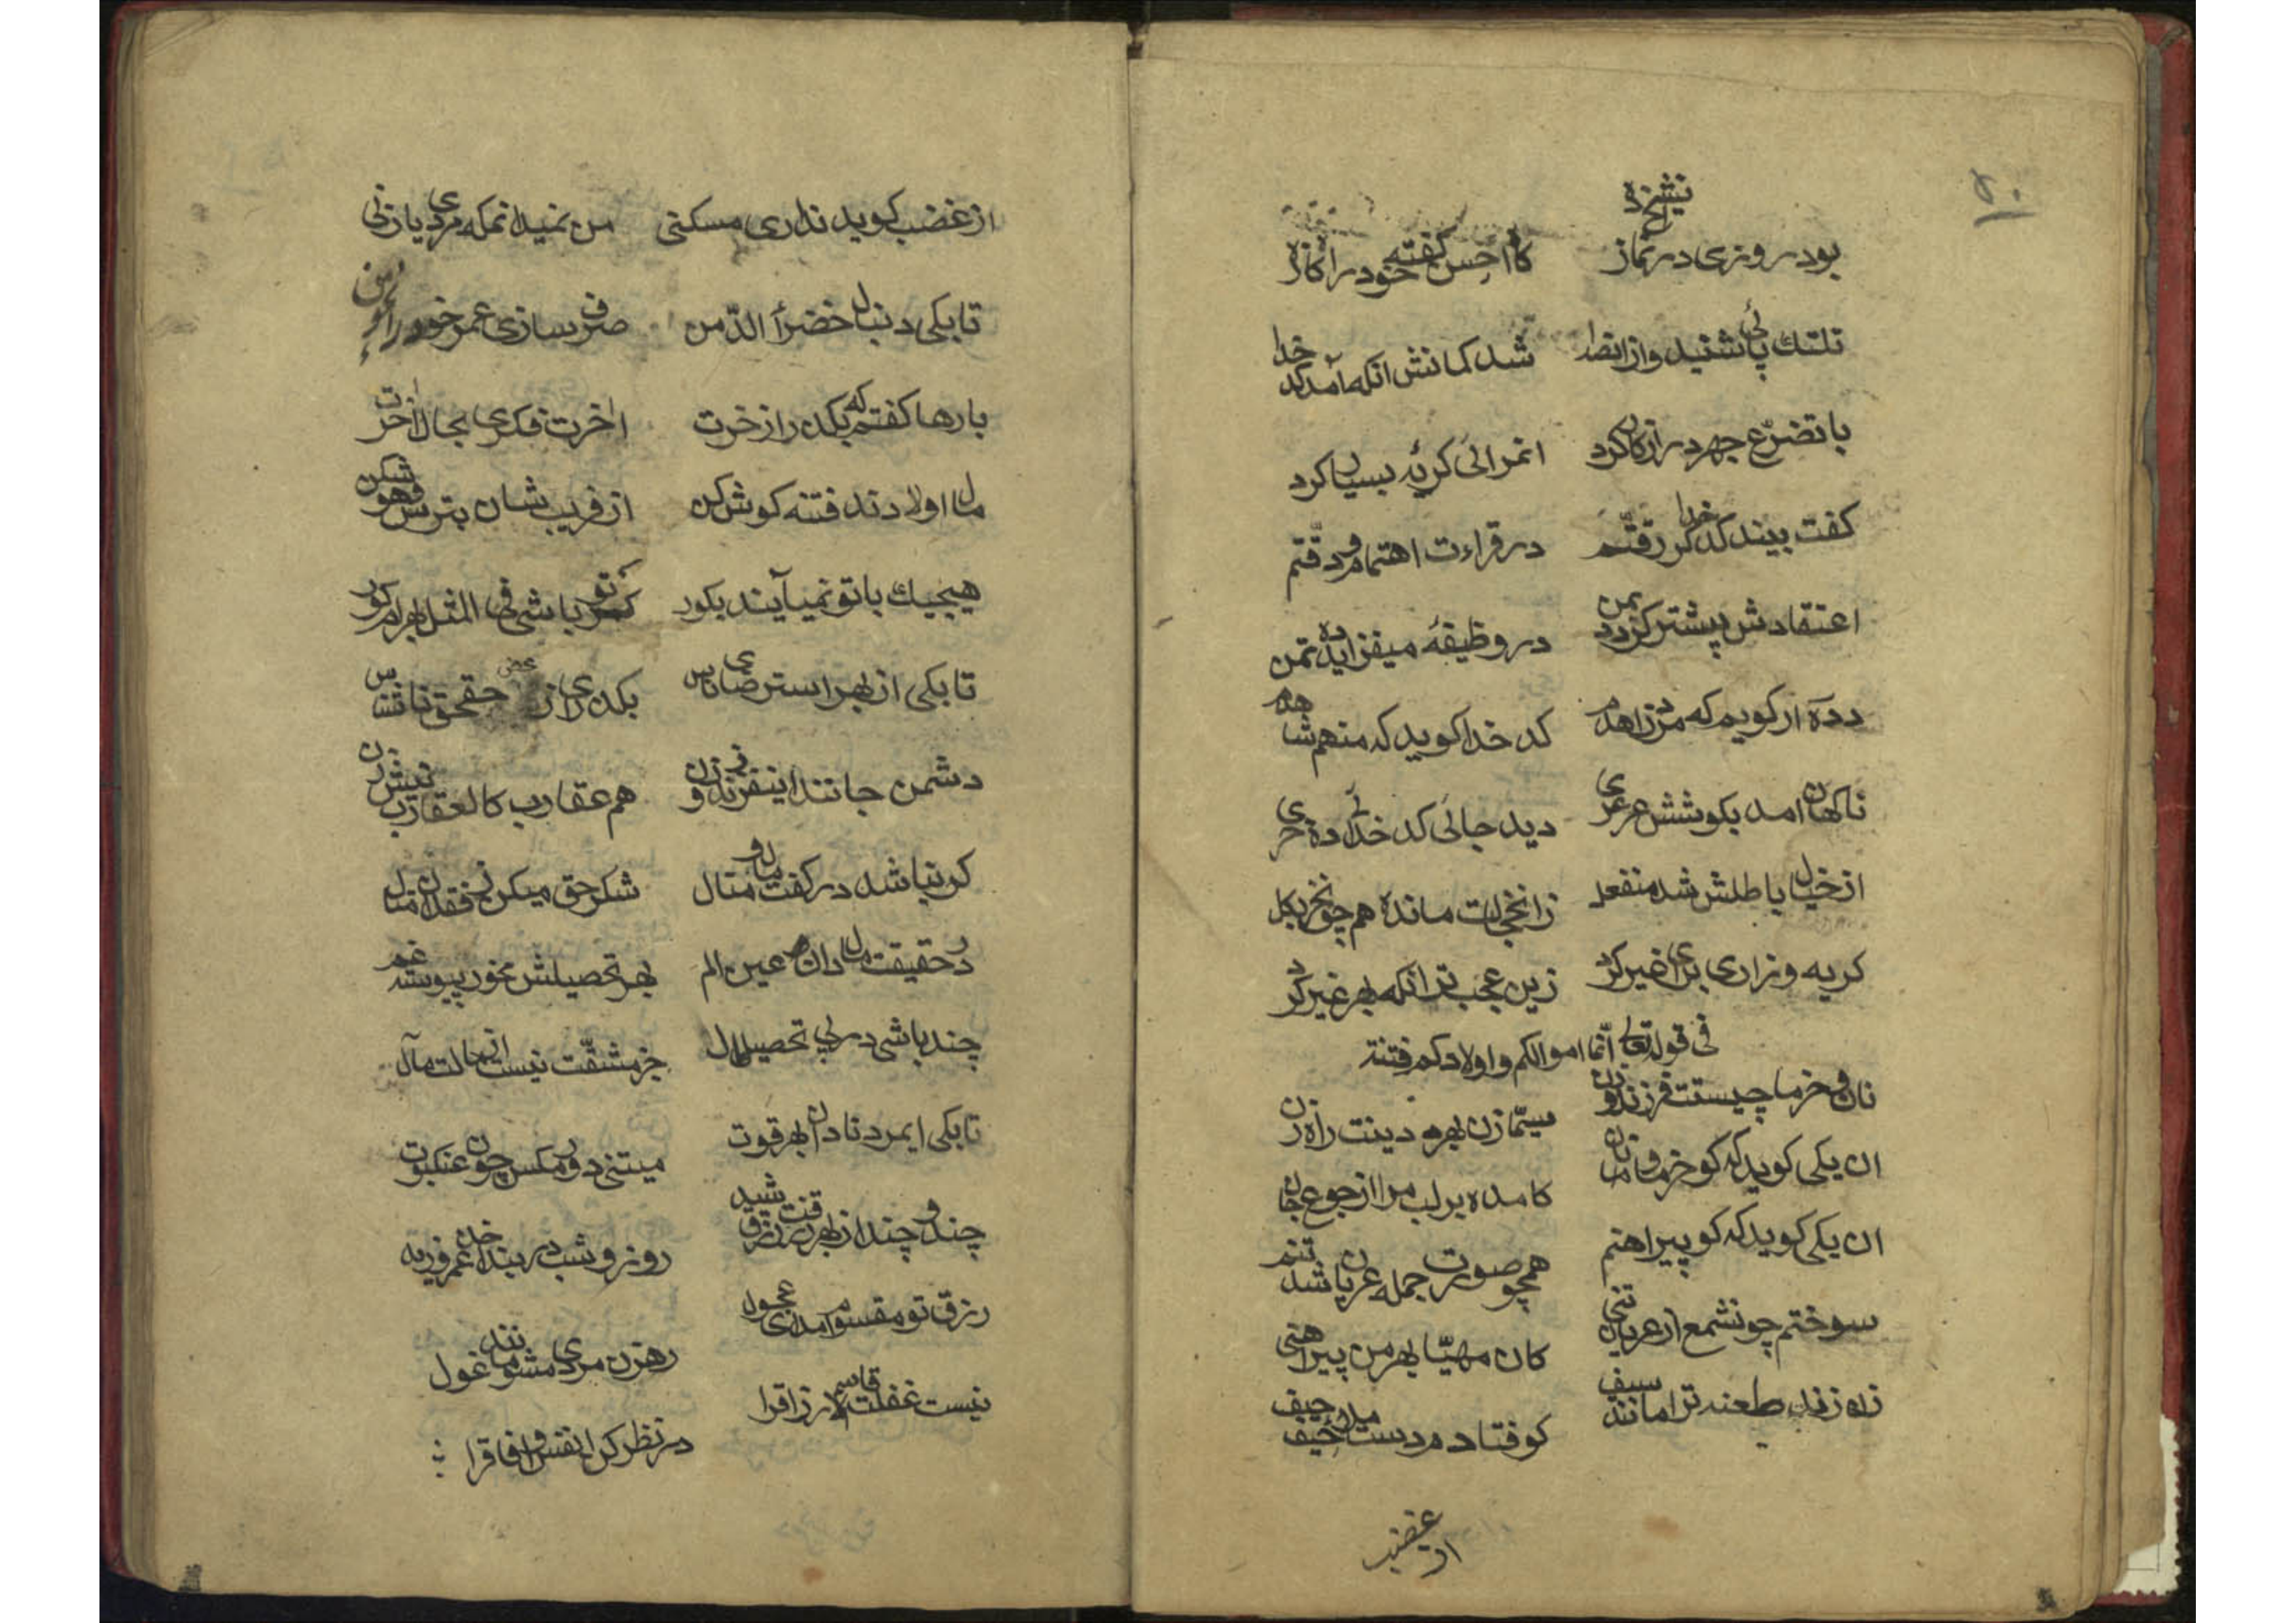 ۵۰
بود روزی در نماز
کااحسن کفته خود را کاز
شنید و از
شد کمانش انکه آمد کد خدا
با تضرّع جهر در ارکان کرد
انمرائی کریهٔ بسیار کرد
کفت بیند کد خدا کر رقتّم
در قراءت اهتمام و دقّتم
اعتقادش پیشتر کردد بمن
در وظیفهٔ میفزاید ده تمن
دده ار کویم که مرد زاهدم
کد خدا کوید که منهم شاهدم
ناکهان امد بکوشش عرعری
دید جائی کد خدا ماده خری
از خیال باطلش شد منفعل
زانخجالت مانده همچو نخر بکل
کریه و زاری برای غیر کرد
زین عجب تر انکه بهر غیر کرد
فی قوله تعالی انّما اموالکم و اولادکم فتنة
نان و خرما چیستت فرزند و زن
سیّما زن بهر دینت راه زن
ان یکی کوید که کو خرما و نان
کامده بر لب مرا از جوع جان
ان یکی کوید که کو پیراهنم
همچو صورت جمله عریان شد تنم
سوختم چونشمع از عریان تنی
کان مهیّا بهر من پیراهنی
زاه زند طعنه ترا مانند سیف
کو فتادم در دست
از غضب
از غضب کوید نداری مسکنی
من نمیدانمکه مردی یا زنی
تا بکی دنبال خضرأ الدّمن
صرف سازی عمر خود را
بارها کفتم که بکدر از خرت
اخرت فکری بحال اخرت
مال اولادند فتنه کوش کن
از فریب شان بترس و هو شکن
هیچیک با تو نمیآیند بکور
کر تو باشی فی المثل بهرام کور
تا بکی از بهر استرضای ناس
بکدری از حق ناشناس
دشمن جانند اینفرزند و زن
هم عقارب کالعقارب نیش زن
کو نباشد در کفت مال و منال
شکر حق میکن بر فقدان منال
در حقیقت مال دان عین الم
بهر تحصیلش مخور پیوسته غم
چند باشی در پی تحصیل مال
جز مشقّت نیست از حالت مآل
تا بکی ایمرد نادان بهر قوت
میتنی دور مکس چون عنکبوت
چند و چند از بهر رزق
روز و شب در بند
رزق تو مقسوم امد ای عجول
رهزن مردی مشو مانند غول
نیست غفلت قاسم الارزاقرا
در نظر کن انفس و افاقرا